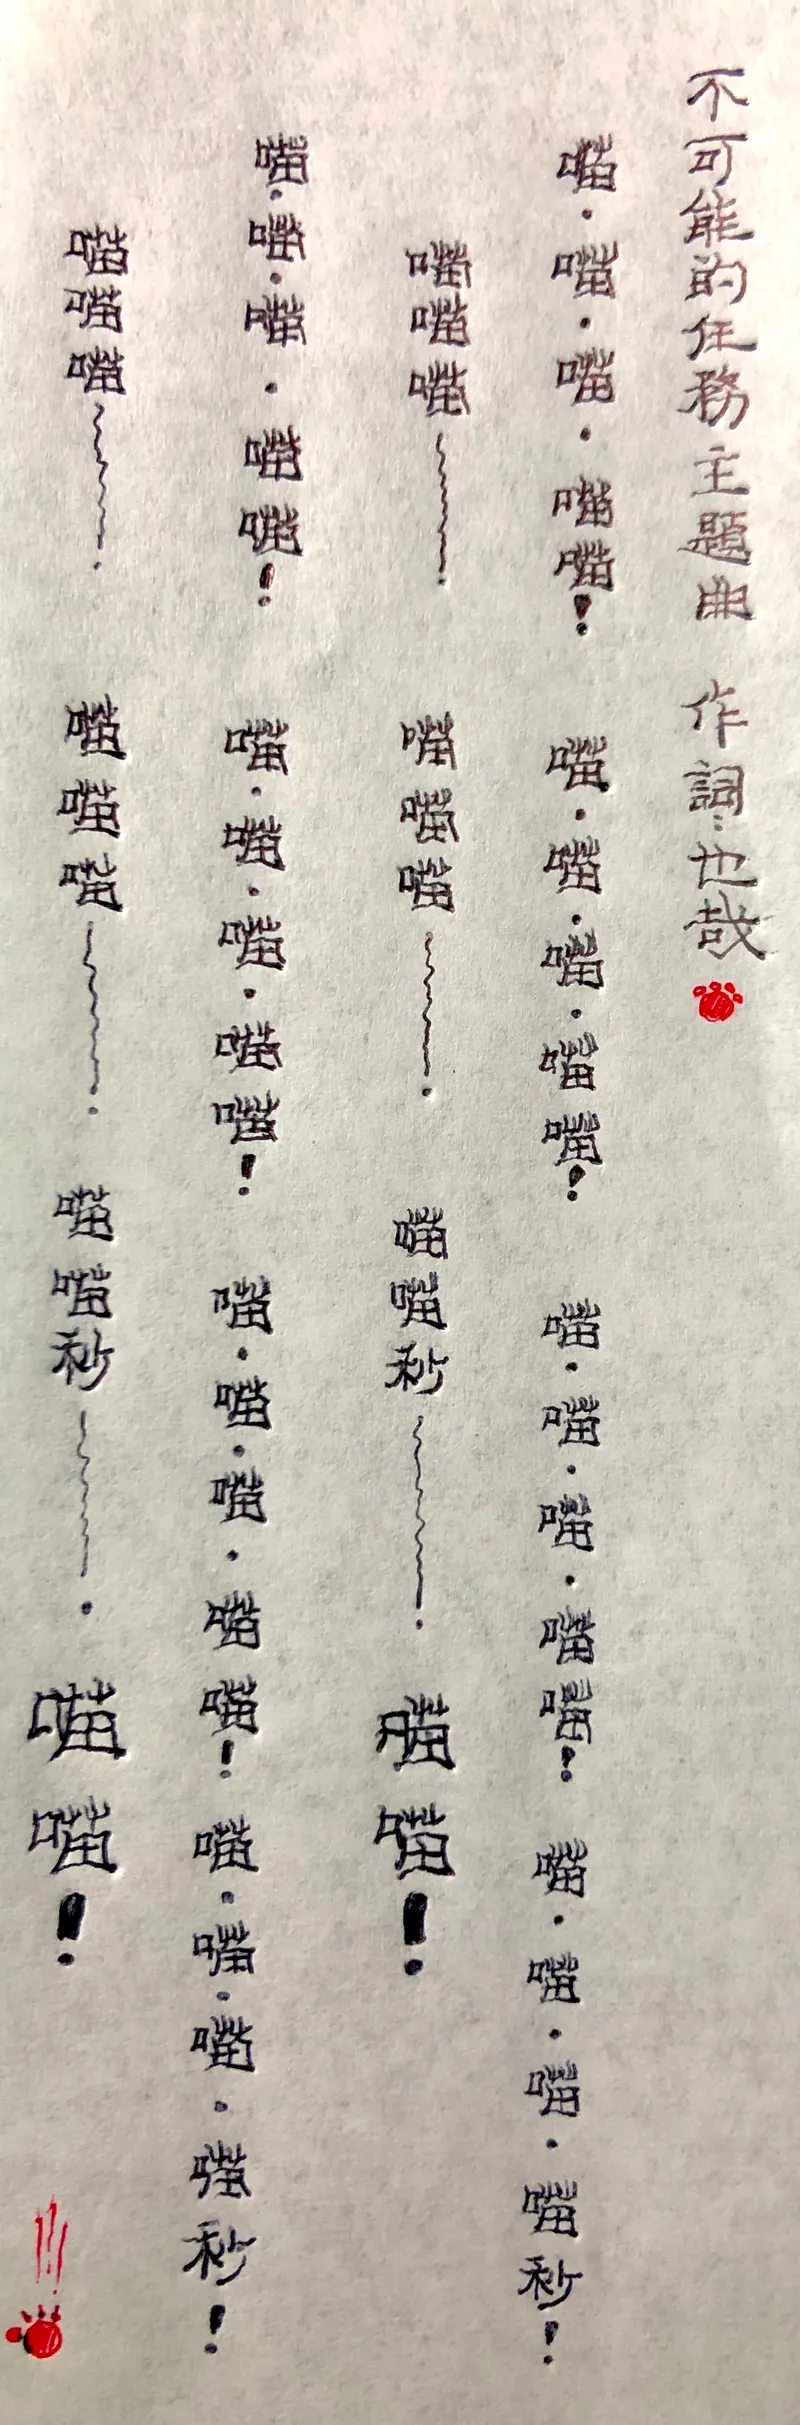 不可能的任務主題曲 作詞:也哉
喵・喵・喵・喵喵! 喵・喵・喵・喵喵! 喵・喵・喵・喵喵! 喵・喵・喵・喵秒!
喵喵喵~~~. 喵喵喵~~~. 喵喵秒~~~. 喵喵!
喵・喵・喵・喵喵! 喵・喵・喵・喵喵! 喵・喵・喵・喵喵! 喵・喵・喵・喵秒!
喵喵喵~~~. 喵喵喵~~~. 喵喵秒~~~. 喵喵!